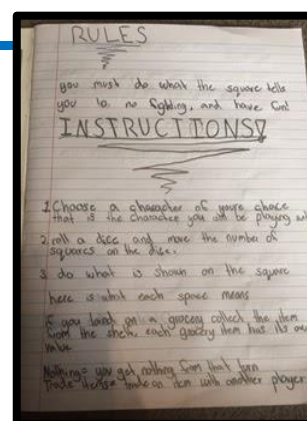 RULES
you must do what the square tells
you to, no fighting, and have fun!
INSTRUCTIONS!
1. Choose a character of youre choice
that is the character you will be playing
2. roll a dice and move the number of
squares on the dice.
3 do what is shown on the square
here is what each space means
if you land on a grocery collect the item
from the shelf, each grocery item has its own
value
Nothing= you get nothing from that turn
Trade items= trade an item with another player